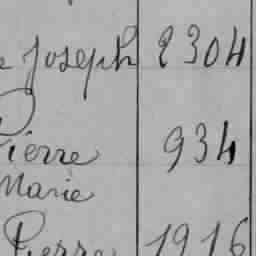 Joseph 2304
Pierre 934
Marie
Pierre 1916